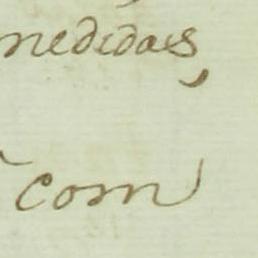 medidas,
com